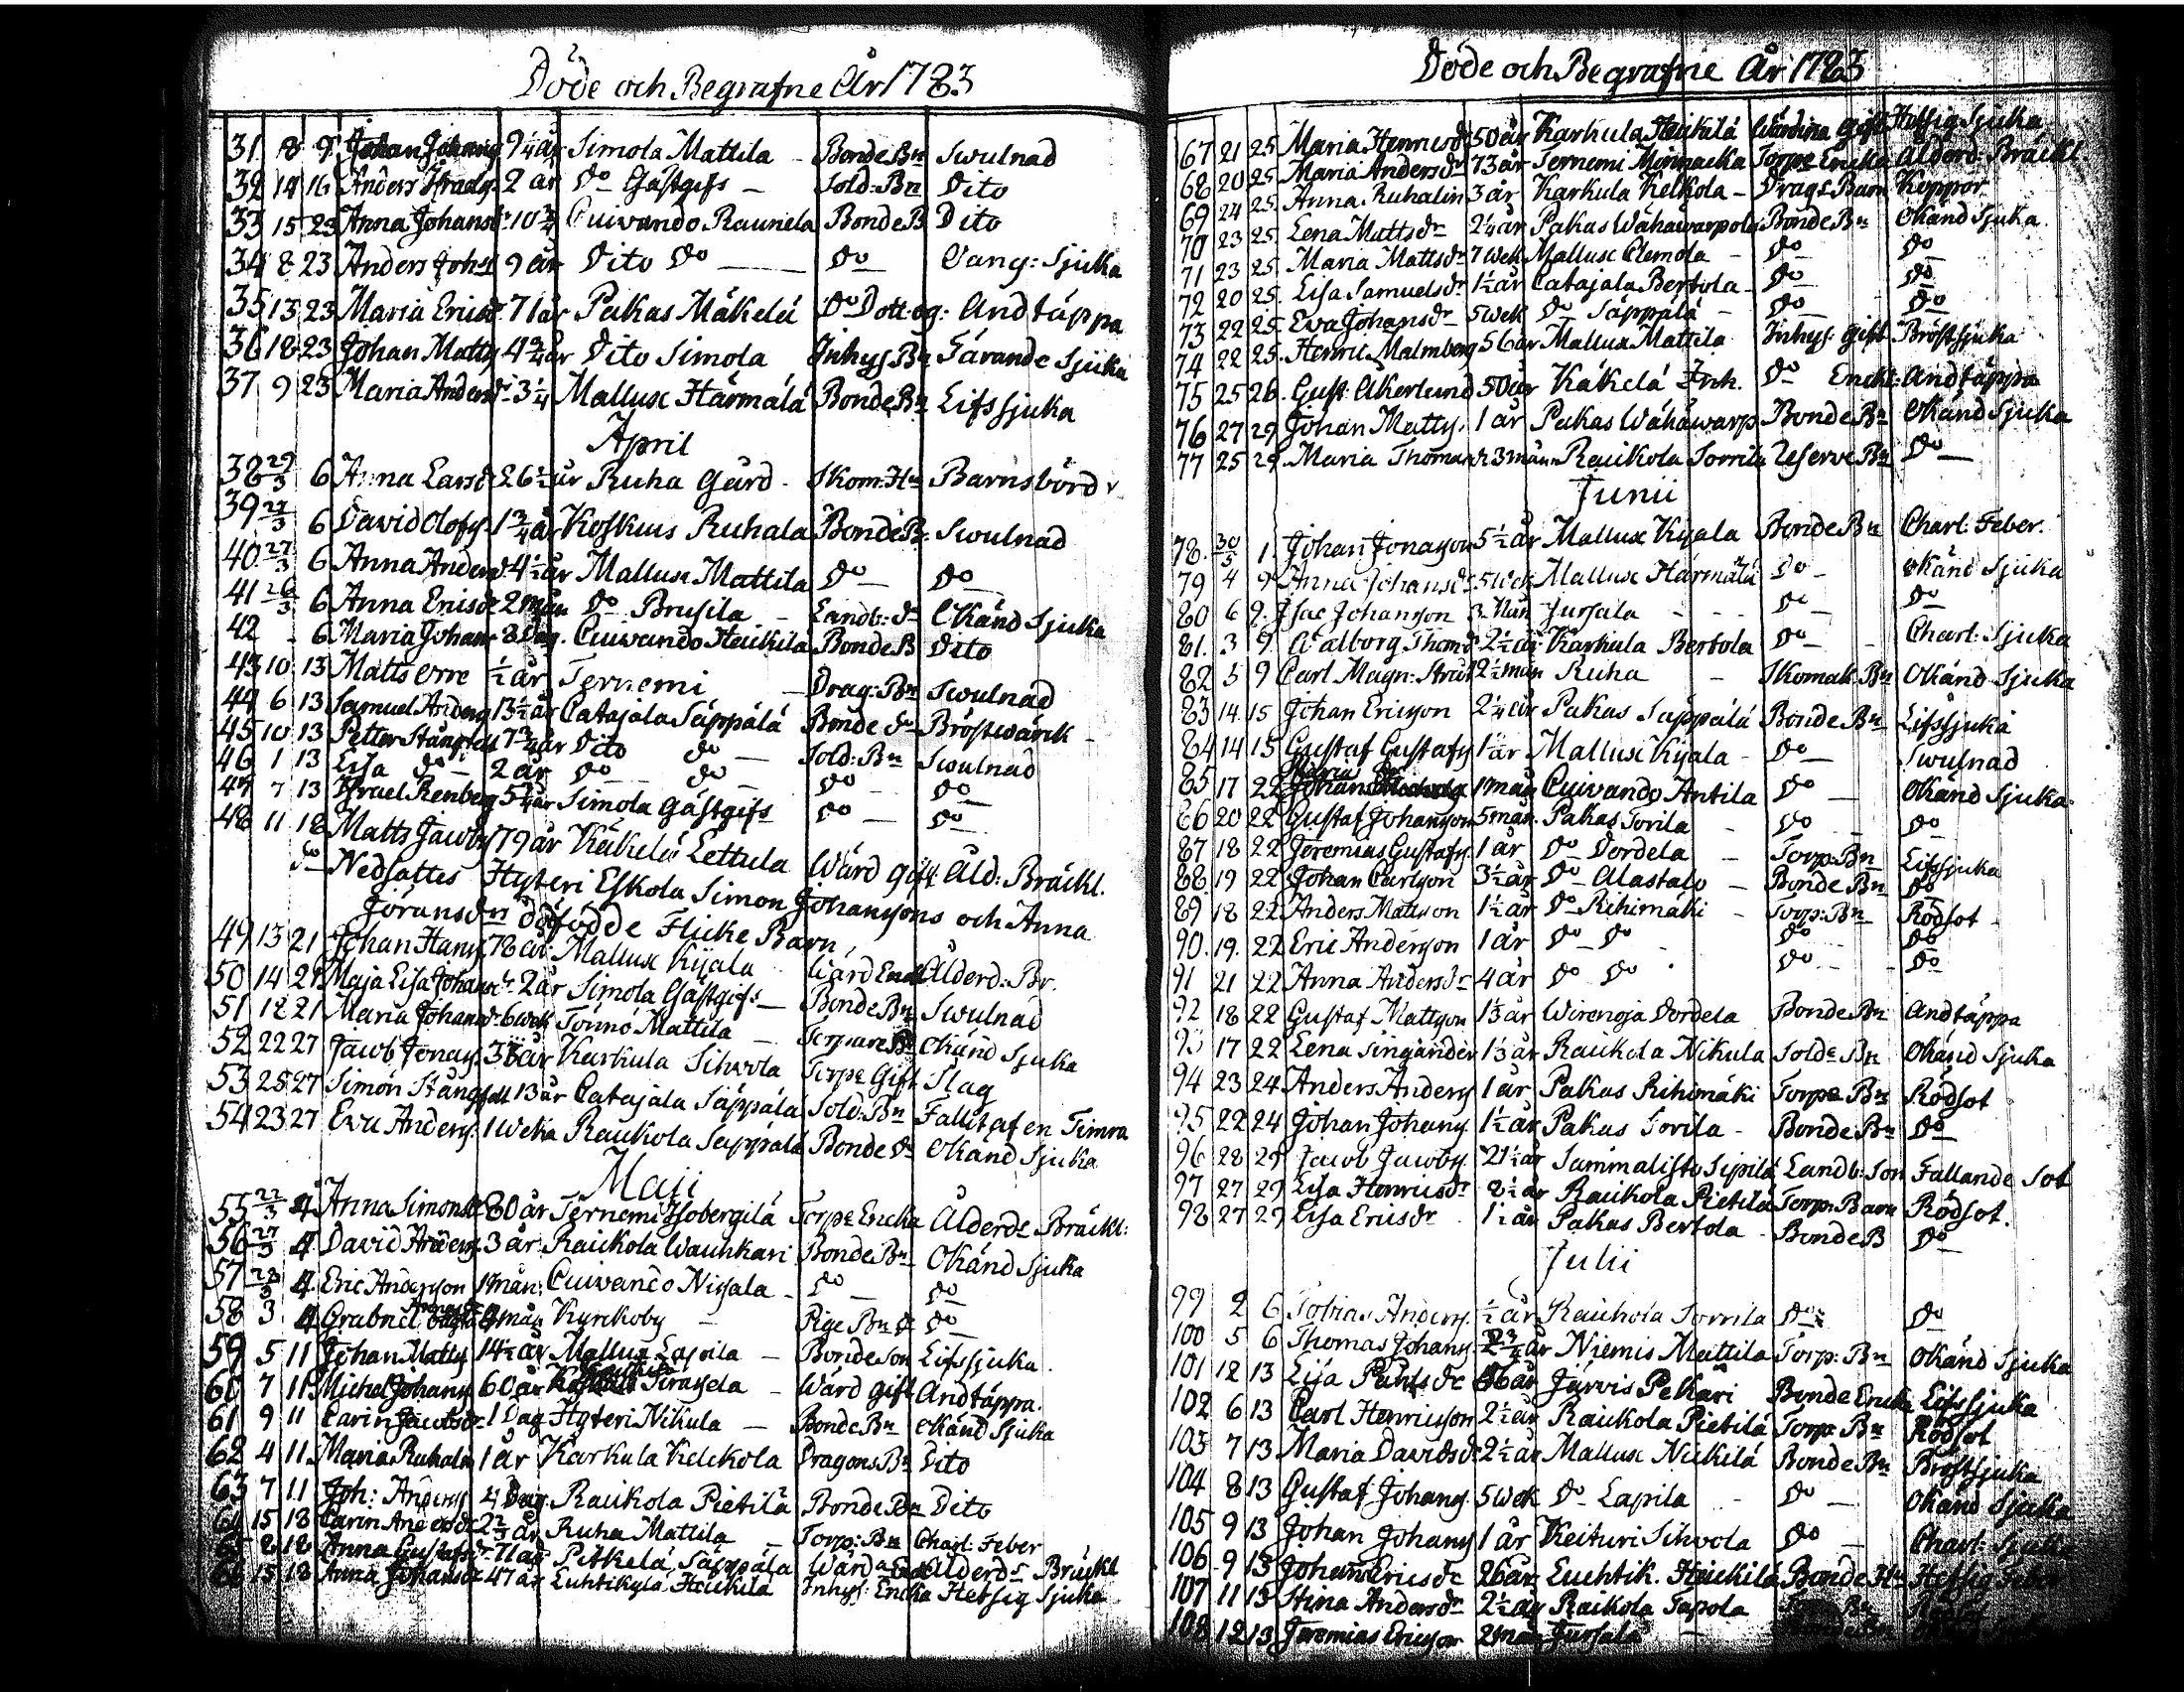 Döde och Begrafne År 1783
31 8 9 Johan Johans 9 1/4 år Simola Mattila - Bonde Bn Swulnad
32 14 16 Anders 2 år Do Gästgifs - Sold: Bn Dito
33 15 23 Anna Johansd 10 3/4 Cuivando Rauniela Bonde B Dito
34 8 23 Anders Johs 9 år Dito Do Do Vang: Sjuka
35 13 23 Maria Ericsd 71 år Pakas Mäkelä Do Dott. og: Andtäppa
36 18 23 Johan Matts 4 3/4 år Dito Simola Inhys Bn Tärande Sjuka
37 9 23 Maria Andersdr 3 1/4 Mallusc Härmälä Bonde Bn Lifssjuka
April
38 29/3 6 Anna Larsd 26 1/2 år Ruha Gård - Skom: Hu Barnsbörd
39 27/3 6 David Olofs 1 3/4 år Koskuis Ruhala Bonde B. Swulnad
40 27/3 6 Anna Andersd 4 1/2 år Mallusc Mattila Do Do
41 26/3 6 Anna Ericsd 2 mån Do Brusila - Landb: dr Okänd Sjuka
42 - 6 Maria Johans 8 Dag. Cuivando Heickilä Bonde B Dito
43 10 13 Matts Orre 1/2 år Ternemi - Drag: Bn Swulnad
44 6 13 Samuel Anders 13 1/2 år Catajala Säppälä Bonde Do Bröstwärck
45 10 13 Petter Stångfelt 7 3/4 år Dito Do Sold: Bn Swulnad
46 1 13 Lisa Do 2 år Do Do Do Do
47 7 13 Israel Renberg 5 1/4 år Simola Gästgifs Do Do
48 11 18 Matts Jacobs 79 år Käkelä Lettula Wärd Gift Åld: Bräckl.
Do Nedsattes Hyteri Eskola Simon Johanssons och Anna
Göransdrs dödfödde Flicke Barn,
49 13 21 Johan Hans 78 år Mallusc Kyala Wärd Enck Ålderd: Br.
50 14 21 Maja Lisa Johansd 2 år Simola Gästgifs Bonde Bn Swulnad
51 18 21 Maria Johansd 6 wek Tönnö Mattila - Torpare Bn Okänd Sjuka
52 22 27 Jacob Jonas 38 år Karkula Sihvola Torpe Gift Slag
53 25 27 Simon Stångfelt 13 år Catajala Säppälä Sold: Bn Fallit af en Timra
54 23 27 Eva Anders: 1 weka Raukola Säppälä Bonde Do Okänd Sjuka
Maji
55 22/3 4 Anna Simonsd 80 år Ternemi Torpe Encka Ålderds Bräckl:
56 27/3 4 David Anders. 3 år Raikola Wauhkari Bonde Bn Okänd Sjuka
57 28/3 4 Eric Andersson 1 mån: Cuivando Nissala - Do Do
58 3 4 Grabriel mån Kynkoby - Pige Bn Do
59 5 11 Johan Matts 14 1/2 år Mallusc Lapila - Bonde Son Lifssjuka
60 7 11 Michel Johans 60 år Siraisela - Wärd gift Andtäppa.
61 9 11 Carin Jacobsdr 1 Dag Hyteri Nikula - Bonde Bn Okänd Sjuka
62 4 11 Maria Ruhalin 1 år Karkula Kelckola Dragons Bn Dito
63 7 11 Joh: Anders 4 Dag Raikola Pietilä Bonde Bn Dito
64 15 18 Carin Andersdr 2 2/3 år Ruha Mattila Torp: Bn Charl: Feber
65 8 18 Anna Gustafsdr 71 år Pitkelä, Säppälä Wärd Enck Ålderds Bräckl
66 15 18 Anna Johansdr 47 år Luhtikylä Heickilä Inhys: Encka Hetsig Sjuka
Döde och Begrafne År 1783
67 21 25 Maria Henricsdr 50 år Karkula Heickilä Wärdina gift Hetsig Sjuka
68 20 25 Maria Andersdr 73 år Ternemi Torpe Encka Ålderd: Bräckl
69 24 25 Anna Ruhalin 3 år Karkula Kelkola - Drags Barn Koppor
70 23 25 Lena Mattsdr 2 1/4 år Pakas Wähäwarpola Bonde Bn Okänd Sjuka
71 23 25 Maria Mattsdr 7 wek Mallusc Clemola Do Do
72 20 25 Lisa Samuelsdr 1 1/2 år Catajala Bertola Do Do
73 22 25 Eva Johansdr 5 wek Do Säppälä - Do Do
74 22 25 Henric Malmberg 56 år Mallusc Mattila Inhys: gift Bröstsjuka
75 25 26 Gust: Åkerlund 50 år Käkelä Inh. Do Enckl: Andtäppa
76 27 29 Johan Matts. 1 år Pakas Wähäwarp Bonde Bn Okänd Sjuka
77 25 29 Maria Thomasdr 3 mån Raikola Torrila Reserve Bn Do
Junii
78 30/5 1 Johan Jonasson 5 1/2 år Mallusc Kyala Bonde Bn Charl: Feber.
79 4 9 Anna Johansdr 5 wek Mallusc Härmälä Do Okänd Sjuka
80 6 9 Isac Johansson 3 mån Jursala - - Do Do
81 3 9 Walborg Thomsd 2 1/2 år Karkula Bertola Do Charl: Sjuka
82 5 9 Carl Magn: 2 1/2 mån Ruha - Skomak: Bn Okänd Sjuka
83 14 15 Johan Ericsson 2 1/4 år Pakas Säppälä Bonde Bn Lifssjuka
84 14 15 Gustaf Gustafs 1 1/2 år Mallusc Kyala - Do Swulnad
85 17 22 Maria 1 mån Cuivando Antila Do Okänd Sjuka
86 20 22 Gustaf Johansson 5 mån. Pakas Torila - Do Do
87 18 22 Jeremias Gustafs 1 år Do Dordela - Torp: Bn Lifssjuka
88 19 22 Johan Carlson 3 1/2 år Do Alastalo - Bonde Bn Do
89 18 22 Anders Matsson 1 1/2 år Do Rihimäki - Torp: Bn Rödsot
90 19 22 Eric Andersson 1 år Do Do Do Do
91 21 22 Anna Andersdr 4 år Do Do Do Do
92 18 22 Gustaf Mattsson 1 1/3 år Wirenoja Dordela Bonde Bn Andtäppa
93 17 22 Lena Singander 1 1/3 år Raikola Nikula Solds Bn Okänd Sjuka
94 23 24 Anders Anders 1 år Pakas Rihimäki Torpe Bn Rödsot
95 22 24 Johan Johans 1 1/2 år Pakas Torila - Bonde Bn Do
96 28 29 Jacob Jacobs. 21 1/2 år Sammalisto Sipilä Landb: Son Fallande Sot
97 27 29 Lisa Henricsdr 8 1/2 år Raikola Pietilä Torp: Barn Rödsot.
98 27 29 Lisa Ericsdr 1 1/2 år Pakas Bertola Bonde B Do
Julii
99 2 6 Tobias Anders. 1/2 år Raikola Torrila Do Do
100 5 6 Thomas Johans. 2 3/4 år Niemis Mattila Torp: Bn Okänd Sjuka
101 12 13 Lisa år Järvis Pekari Bonde Encka Lifssjuka
102 6 13 Carl Henricsson 2 1/2 år Raikola Pietilä Torp: Bn Rödsot
103 7 13 Maria Davidsdr 2 1/2 år Mallusc Neikilä Bonde Bn Bröstsjuka
104 8 13 Gustaf Johans. 5 wek Do Lapila - Do Okänd Sjuka
105 9 13 Johan Johans 1 år Keituri Sihvola Do Charl: Sjuka
106 9 13 Johan Ericsdr 26 år Luchtik. Heickilä Bonde Hu Hetsig Feber
107 11 13 Stina Andersdr 2 1/2 år Raikola Tapola Torp: Bn Rödsot
108 12 13 Jeremias Ericsson 2 mån Jursala - Bonde Bn